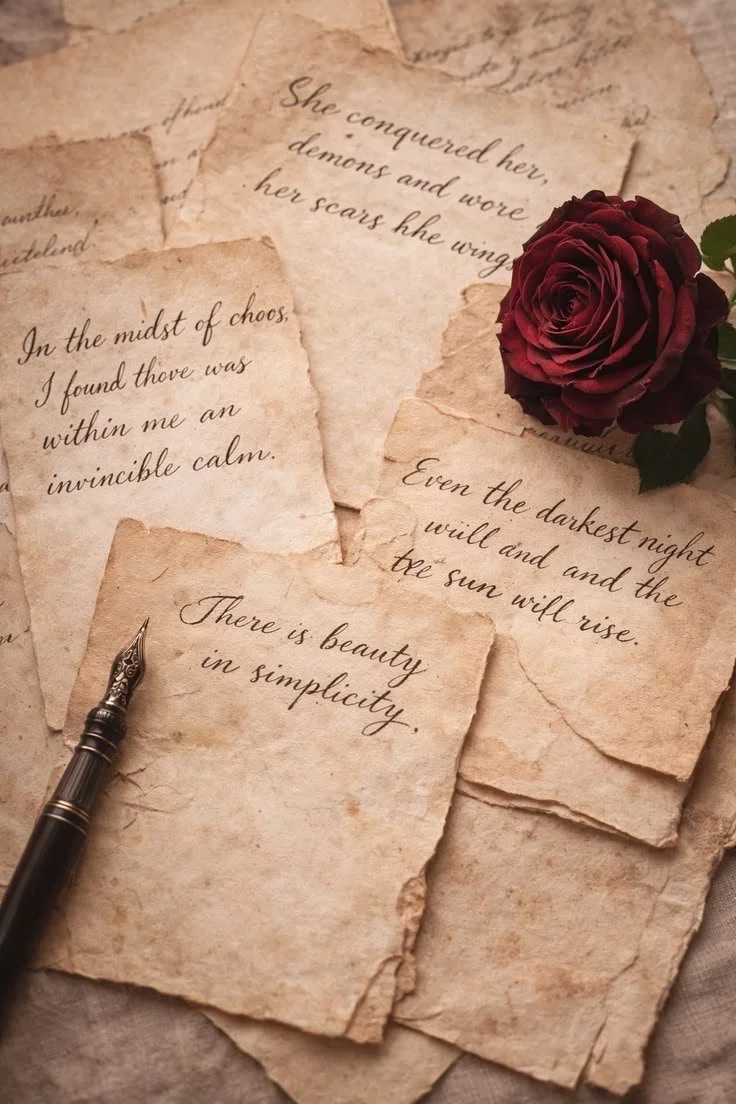 She conquered her,
demons and wore
her scars hhe wings
In the midst of choos,
I found thove was
within me an
invincible calm.
Even the darkest night
will and and the
txe sun will rise.
There is beauty
in simplicity.